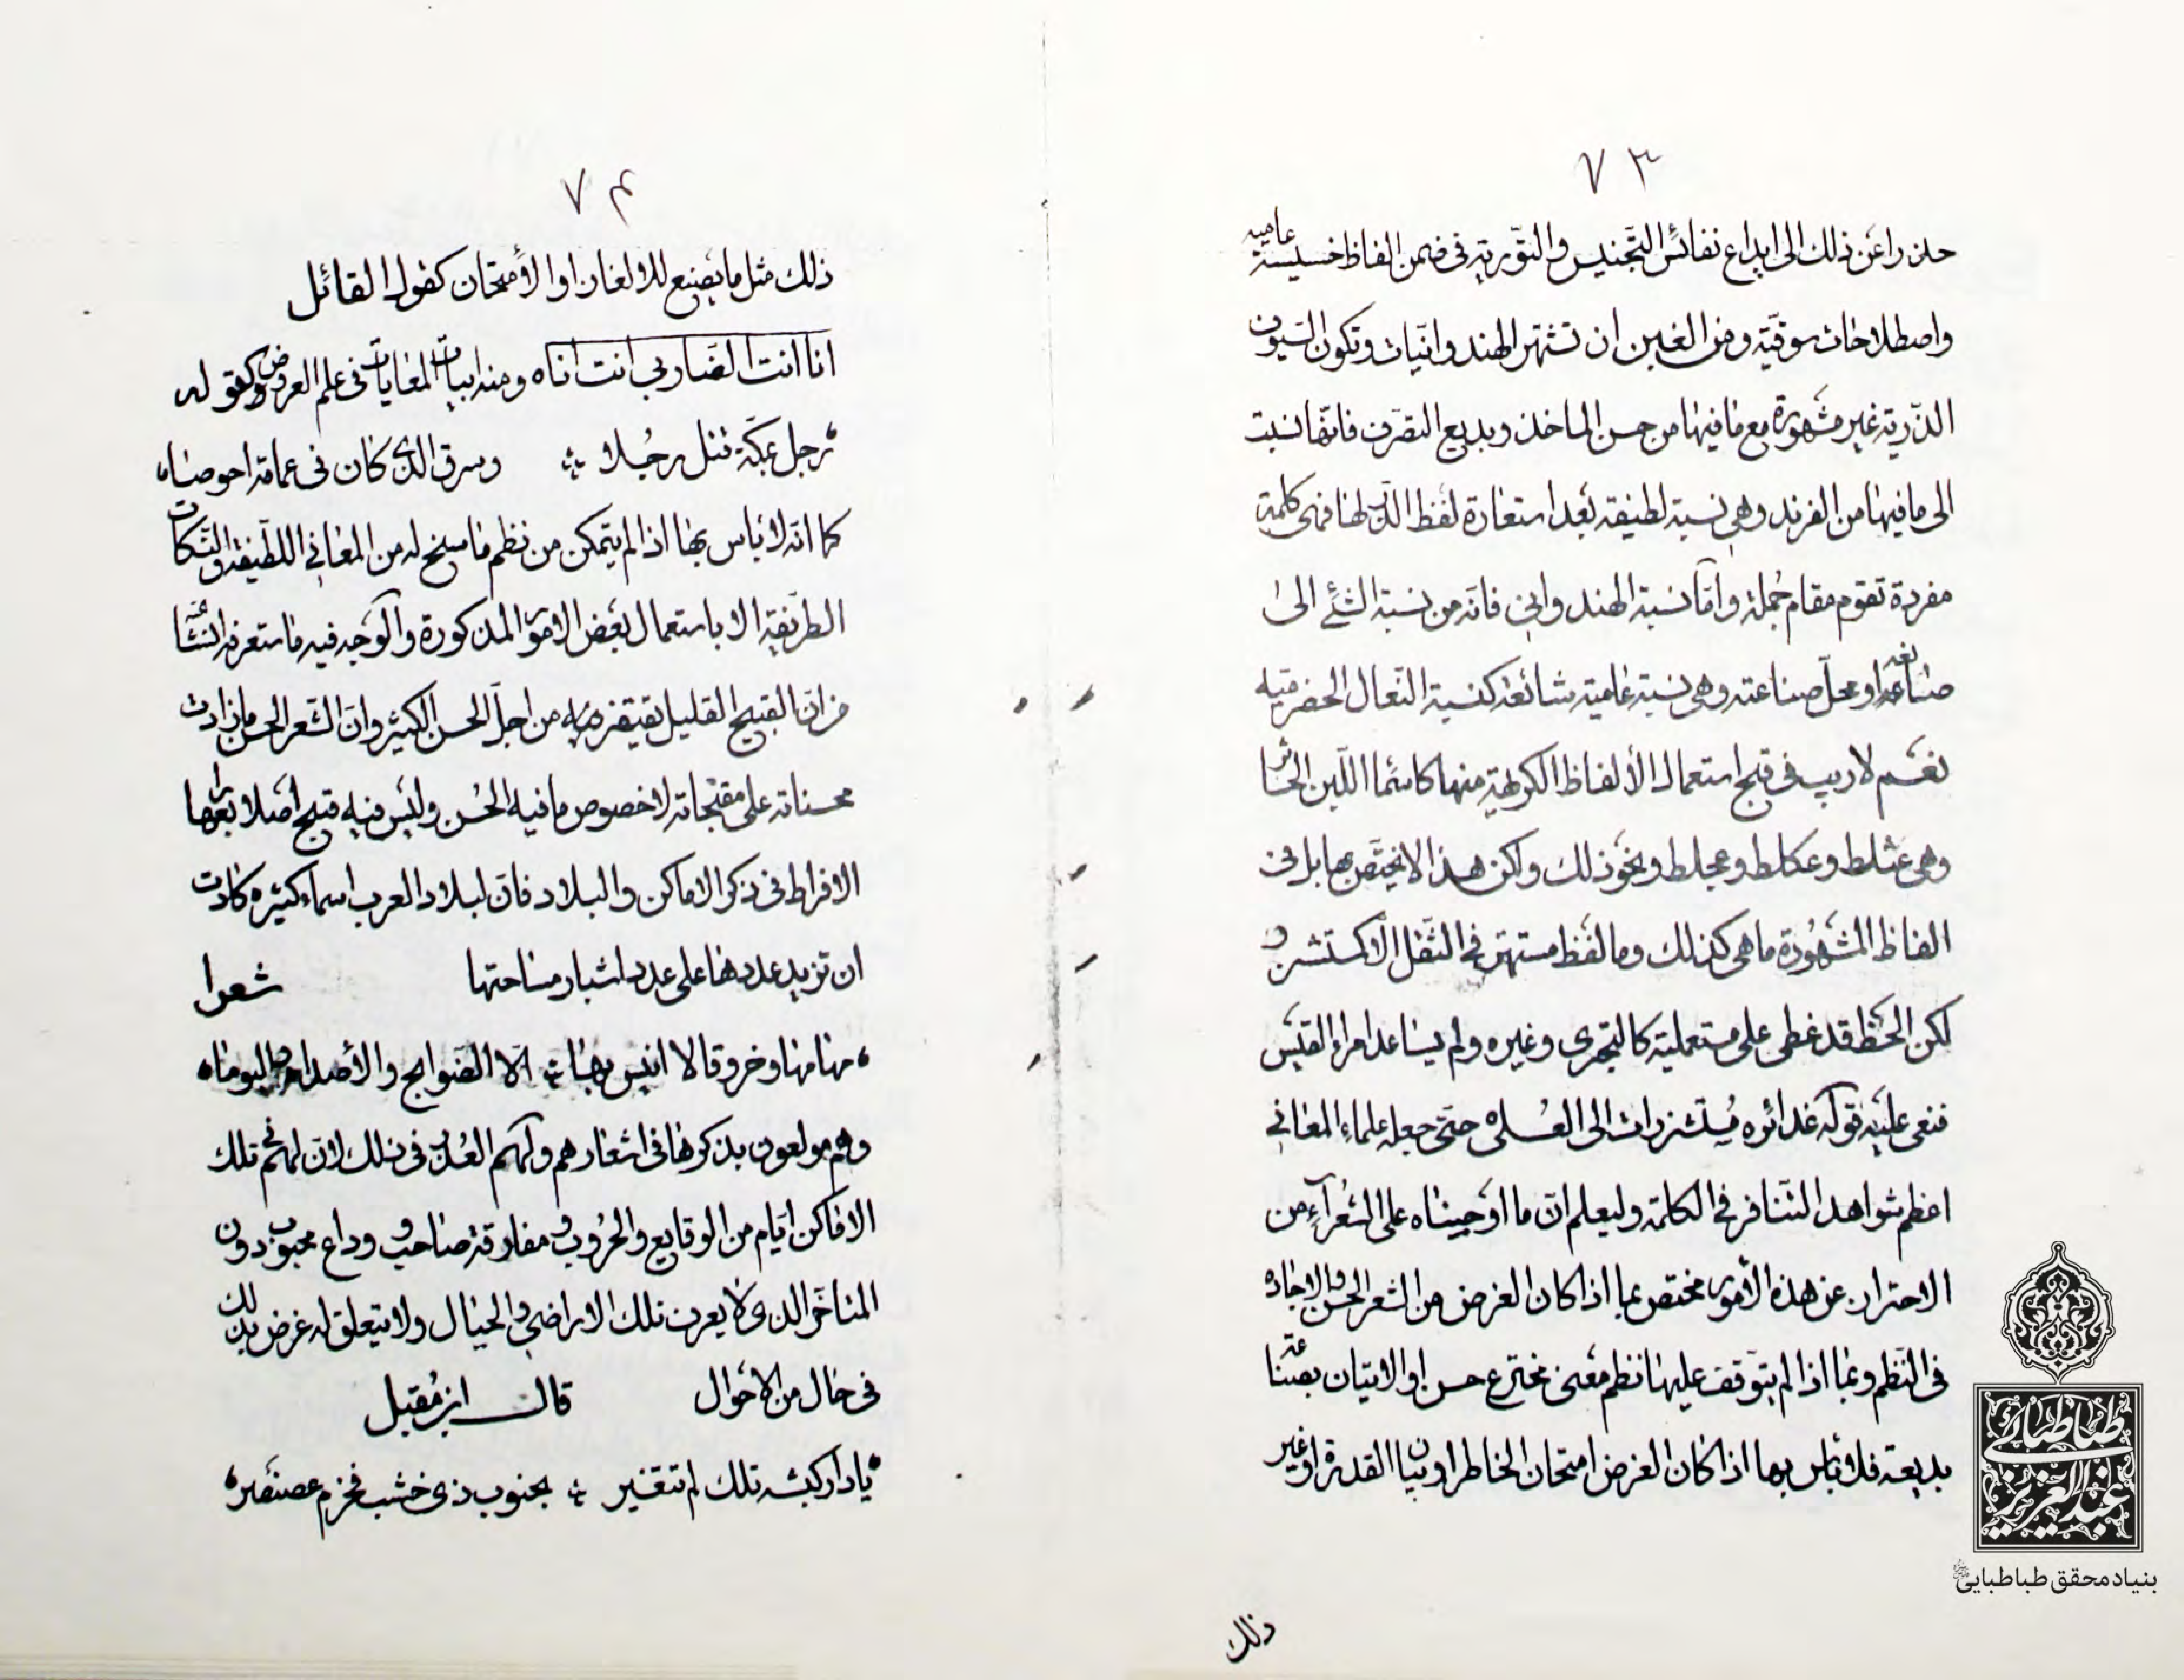 ٧٣
حذرا عن ذلك الى ابداع نفائس التجنيس والتورية فى ضمن الفاظ خسيسة عامية
واصطلاحات سوقية ومن الغبن ان تشتهر الهندوانيات وتكون السيوف
الذرية غير مشهورة مع ما فيها من حسن الماخذ وبديع التصرف فانها نسبت
الى ما فيها من الفرند وهى نسبة لطيفة بعد استعارة لفظ الذر لها فهى كلمة
مفردة تقوم مقام جملة واما نسبة الهندوانى فانه من نسبة الشئ الى
صانعه او محل صناعته وهى نسبة عامية شائعة كنسبة النعال الحضرمية
نعم لا ريب فى قبح استعمال الألفاظ الكريهة منها كاسماء اللبن الخاثر
وهى عثلط وعكلط وعجلط ونحو ذلك ولكن هذا لا يختص بها بل فى
الفاظ المشهورة ما هى كذلك وما لفظ مستهتر فى الثقل الا كمستشزر
لكن الحظ قد غطى على مستعمليه كالبحترى وغيره ولم يساعد امراء القيس
فنعى عليه قوله غدائره مستشزرات الى العلى حتى جعله علماء المعانى
اعظم شواهد التنافر فى الكلمة وليعلم ان ما اوجبناه على الشعراء من
الاحتراز عن هذه الأمور مختص بما اذا كان الغرض من الشعر الحسن والاجاده
فى النظم وبما اذا لم يتوقف عليها نظم معنى مخترع حسن او الاتيان بصناعة
بديعة فلا بأس بها اذا كان الغرض امتحان الخاطر او بيان القدرة او غير
ذلك
٧٤
ذلك مثل ما يصنع للالغاز او الأمتحان كقول القائل
انا انت الضاربى انت انا ومنه ابيات المغايات فى علم العروض وكقوله
رجل بمكة قتل رجلا وسرق الذى كان فى عمامة احوصا
كما انه لا بأس بها اذا لم يتمكن من نظم ما سنح له من المعانى اللطيفة والنكات
الطريفة الا باستعمال بعض الامور المذكورة والوجه فيه ما ستعرفه انشاء
من ان القبيح القليل يغتفر من اجل الحسن الكثير وان الشعر الحسن ما زادت
محسناته على مقبحاته لا خصوص ما فيه الحسن وليس فيه قبيح اصلا رابعها
الافراط فى ذكر الاماكن والبلاد فان لبلاد العرب اسماء كثيره كادت
ان تزيد عددها على عدد اشبار مساحتها شعرا
مهامها وخروقا لا انيس بها الا الضوابح والأصداء والبوما
وهم مولعون بذكرها فى اشعارهم ولهم العذر فى ذلك لان لهم فى تلك
الاماكن ايام من الوقايع والحروب ومفارقة صاحب ووداع محبوب دون
المتاخر الذى لا يعرف تلك الاراضى والجبال ولا يتعلق له غرض بذلك
فى حال من الاحوال قال ابن مقبل
يا دار كبشة تلك لم تتغير بجنوب ذى خشب فحزم عصنصر
طباطبائى
عبدالعزيز
بنیاد محقق طباطبایی